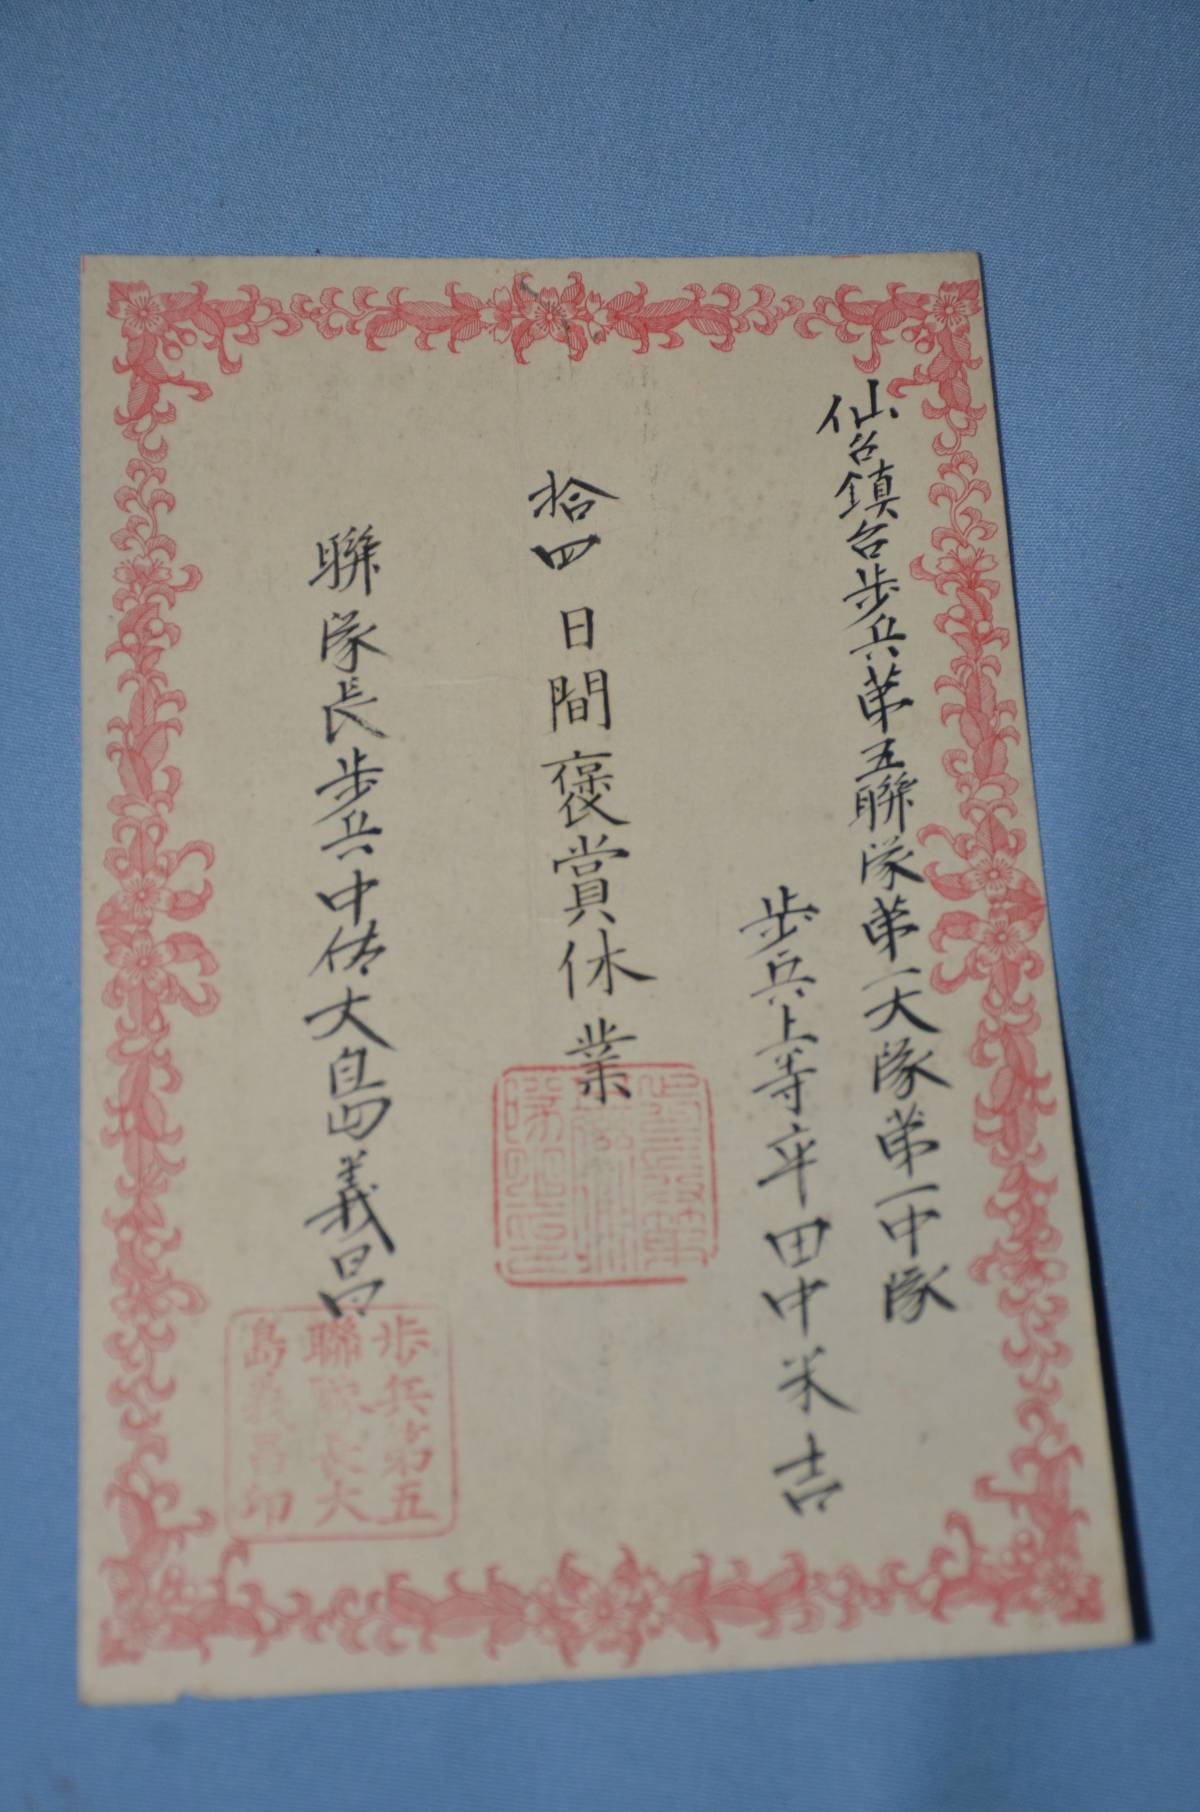 仙台鎮台歩兵第五聯隊第一大隊第一中隊
歩兵上等卒田中米吉
拾四日間褒賞休業
聯隊長歩兵中佐大島義昌
歩兵第五
聯隊長大
島義昌印